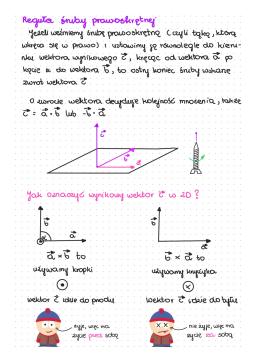 Reguła śruby prawoskrętnej
Jeżeli weźmiemy śrubę prawoskrętną (czyli taką, którą
wkręca się w prawo) i ustawimy ją równolegle do kierun-
ku wektora wynikowego c, kręcąc od wektora a po
kącie α do wektora b, to ostry koniec śruby wskaże
zwrot wektora c
O zwrocie wektora decyduje kolejność mnożenia, także
c = a × b lub -b × a
c
b
a
Jak oznaczyć wynikowy wektor c w 2D?
b
a
b
a
a × b to
używamy kropki
b × a to
używamy krzyżyka
wektor c idzie do przodu
wektor c idzie do tyłu
żyje, więc ma
życie przed sobą
nie żyje, więc ma
życie za sobą